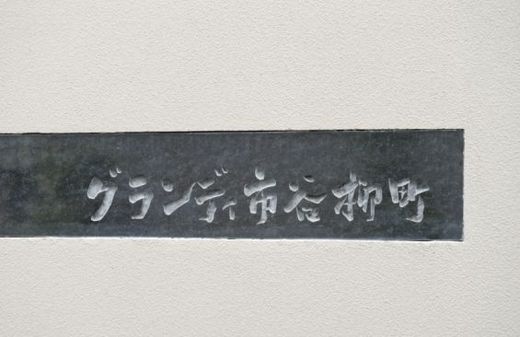 グランディ市谷柳町